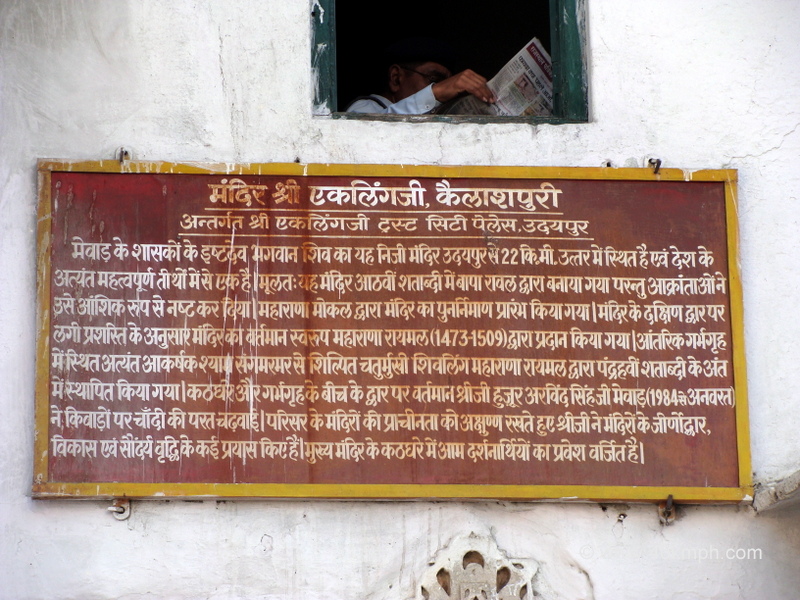 मंदिर श्री एकलिंगजी, कैलाशपुरी
अन्तर्गत श्री एकलिंगजी ट्रस्ट सिटी पेलेस, उदयपुर
मेवाड़ के शासकों के इष्टदेव भगवान शिव का यह निजी मंदिर उदयपुर से 22 कि.मी. उत्तर में स्थित है एवं देश के
अत्यंत महत्वपूर्ण तीर्थों में से एक है। मूलतः यह मंदिर आठवीं शताब्दी में बापा रावल द्वारा बनाया गया परन्तु आक्रांताओं ने
उसे आंशिक रूप से नष्ट कर दिया। महाराणा मोकल द्वारा मंदिर का पुनर्निमाण प्रारंभ किया गया। मंदिर के दक्षिण द्वार पर
लगी प्रशस्ति के अनुसार मंदिर का वर्तमान स्वरूप महाराणा रायमल (1473-1509) द्वारा प्रदान किया गया। आंतरिक गर्भगृह
में स्थित अत्यंत आकर्षक श्याम संगमरमर से शिल्पित चतुर्मुखी शिवलिंग महाराणा रायमल द्वारा पंद्रहवीं शताब्दी के अंत
में स्थापित किया गया। कठघरे और गर्भगृह के बीच के द्वार पर वर्तमान श्रीजी हुजूर अरविंद सिंह जी मेवाड़ (1984 से अनवरत)
ने किवाड़ों पर चाँदी की परत चढ़वाई। परिसर के मंदिरों की प्राचीनता को अक्षुण्ण रखते हुए श्रीजी ने मंदिरों के जीर्णोद्धार,
विकास एवं सौंदर्य वृद्धि के कई प्रयास किए हैं। मुख्य मंदिर के कठघरे में आम दर्शनार्थियों का प्रवेश वर्जित है।